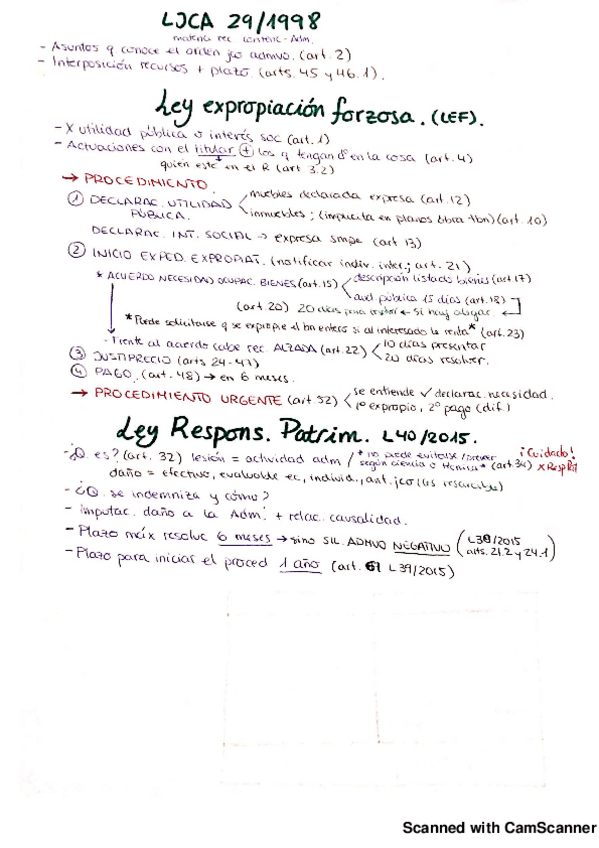 LJCA 29/1998
materia rec. contenc-Adm.
- Asuntos q conoce el orden jco admvo. (art. 2)
- Interposición recursos + plazo. (arts. 45 y 46.1).
Ley expropiación forzosa. (LEF).
- X utilidad pública o interés soc (art. 1)
- Actuaciones con el titular + los q tengan dº en la cosa (art. 4)
quien esté en el R (art 3.2)
→ PROCEDIMIENTO.
① DECLARAC. UTILIDAD PÚBLICA.
muebles declarada expresa (art. 12)
inmuebles; (implícita en planos obra tbn) (art. 10)
DECLARAC. INT. SOCIAL → expresa smpe (art 13)
② INICIO EXPED. EXPROPIAT. (notificar indiv. inter.; art. 21)
* ACUERDO NECESIDAD OCUPAC. BIENES (art. 15)
descripción listado bienes (art. 17)
aud pública 15 días (art. 18)
(art 20) 20 días para ← si hay alegac.
*Puede solicitarse q se expropie el bn entero si al interesado le renta* (art. 23)
- Frente al acuerdo cabe rec. ALZADA (art. 22)
10 días presentar
20 días resolver.
③ JUSTIPRECIO (arts 24-47)
④ PAGO. (art. 48) → en 6 meses.
→ PROCEDIMIENTO URGENTE (art 52)
se entiende ✓ declarac. necesidad.
1º expropio, 2º pago (dif.)
Ley Respons. Patrim. L40/2015.
- ¿Q. es? (art. 32) lesión = actividad adm / * no puede evitarse/prever según ciencia o técnica * (art. 34)
¡Cuidado!
X RespPat
daño = efectivo, evaluable ec, individ., ant.jco (es resarcible)
- ¿Q. se indemniza y cómo?
- imputac. daño a la Adm. + relac. causalidad.
- Plazo máx resoluc 6 meses → sino SIL. ADMVO NEGATIVO (L39/2015 arts. 21.2 y 24.1)
- Plazo para iniciar el proced 1 año (art. 67 L39/2015)
Scanned with CamScanner